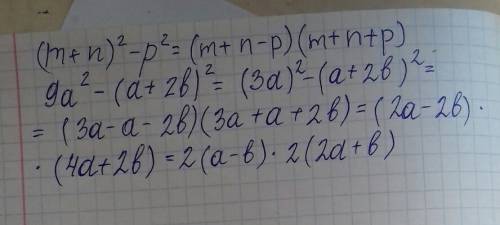 (m+n)²-p²=(m+n-p)(m+n+p)
9a²-(a+2в)²=(3a)²-(a+2в)²=
=(3a-a-2в)(3a+a+2в)=(2a-2в)·
·(4a+2в)=2(a-в)·2(2a+в)